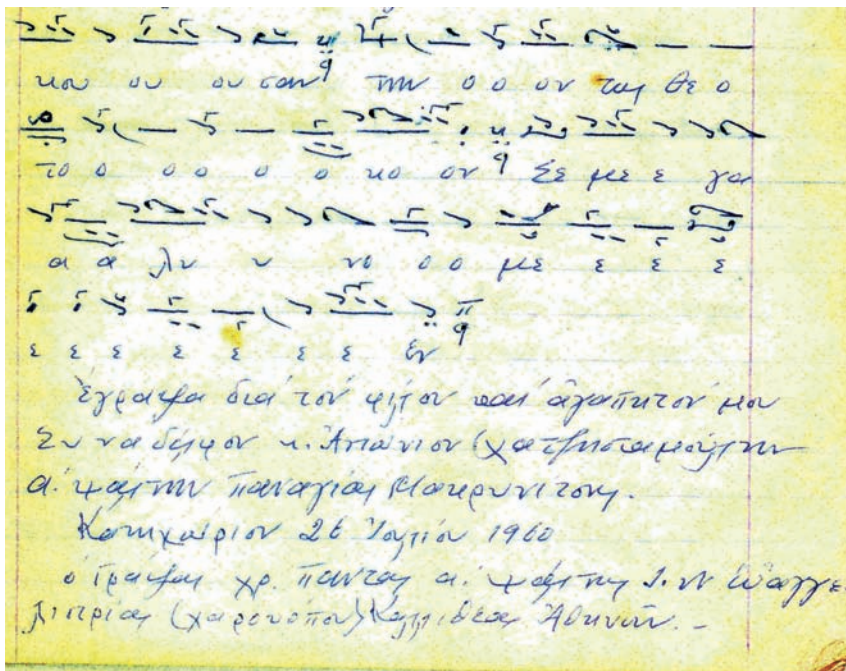 κου ου ου σαν την ο ο ον τως θε ο
το ο ο ο ο ο κο ον Σε με ε γα
α α λυ υ νο ο ο με ε ε ε
ε ε ε ε ε ε ε εν
Έγραψα διά τον φίλον και αγαπητόν μου
Συνάδελφον κ. Απώνιον (χατζησταμούλην
α. ψάλτην Παναγίας Μακρυνίτσης.
Κατηχώριον 26 Ιουλίου 1960
ο Γράψας χρ. Πάντας α. ψάλτης Ι. Ν Ευαγγε-
λιστρίας (χαροκόπου) Καλλιθέας Αθηνών. -